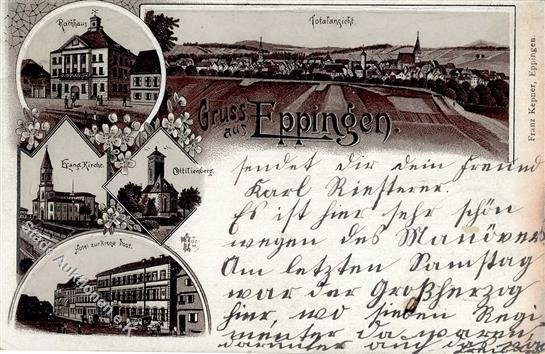 Rathhaus
Totalansicht.
Gruss
aus Eppingen.
Evang. Kirche.
Ottilienberg.
Hotel zur Krone Post.
Franz Kepner, Eppingen.
sendet dir dein Freund
Karl Riesterer.
Es ist hier sehr schön
wegen des Manövers
Am letzten Samstag
war der Großherzog
hier, wo sieben Regi
menter da waren,
darunter auch das